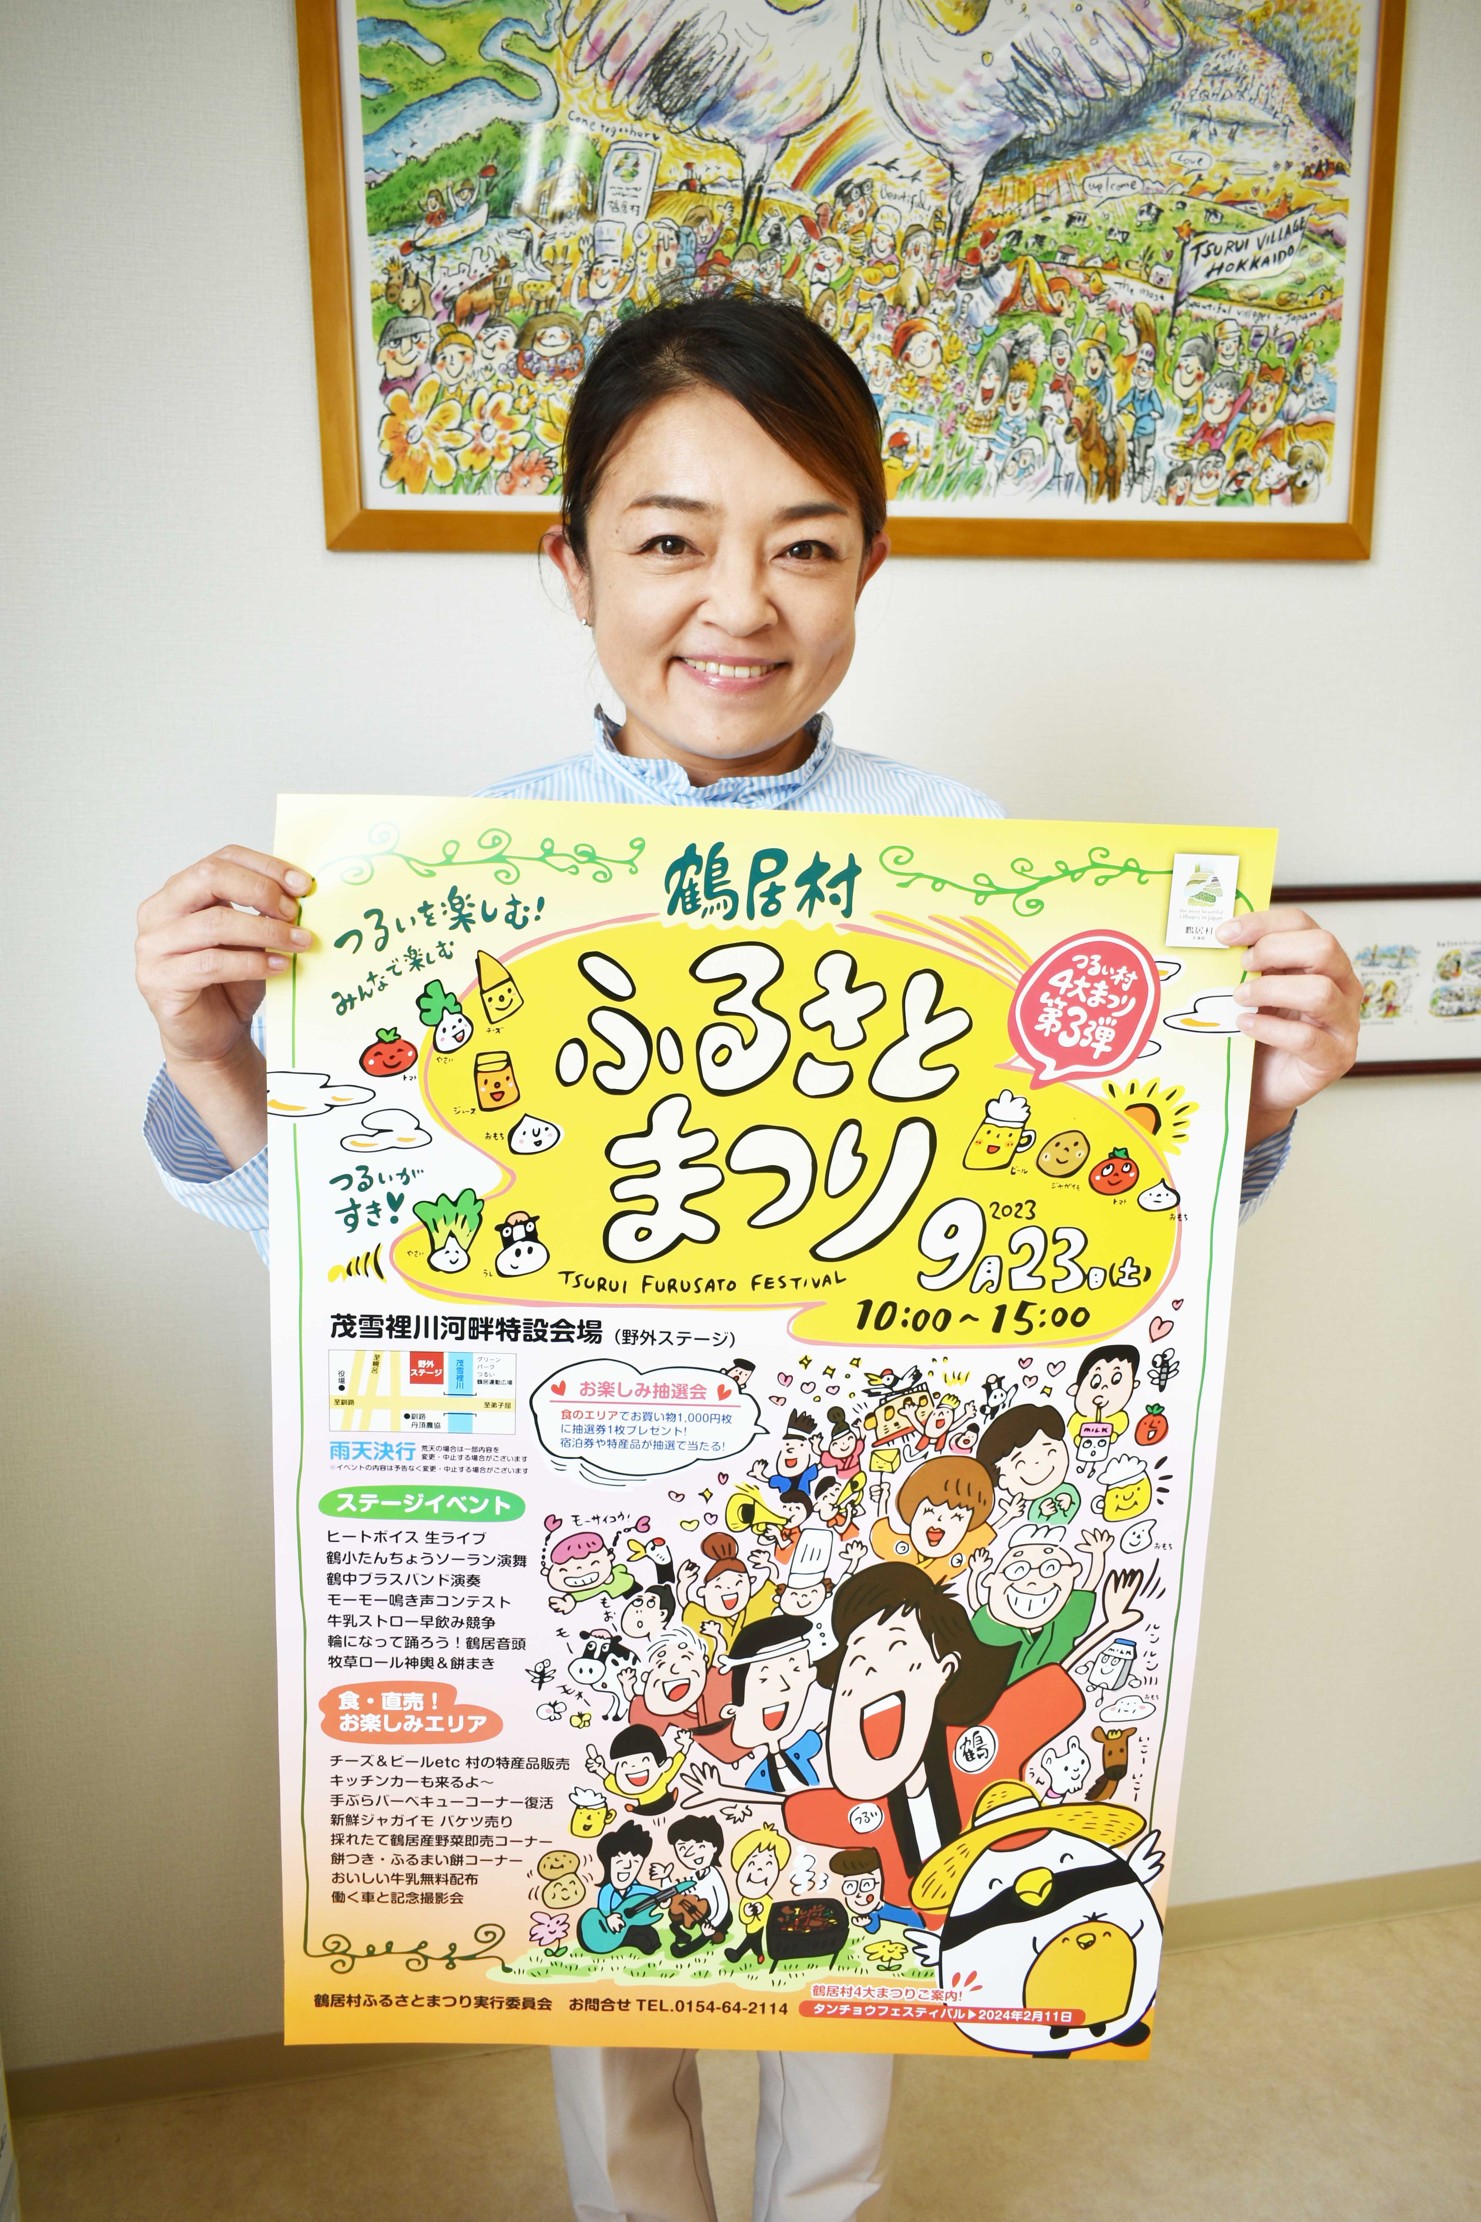 Come together
鶴居村
beautiful
Love
welcome
TSURUI VILLAGE
HOKKAIDO
The most
beautiful villages in Japan
鶴居村
つるいを楽しむ！
みんなで楽しむ
ふるさと
まつり
つるい村
4大まつり
第3弾
鶴居村
チーズ
やさい
トマト
ジュース
おもち
ビール
ジャガイモ
トマト
おもち
つるいが
すき♥
やさい
うし
2023
9月23日(土)
TSURUI FURUSATO FESTIVAL
10:00~15:00
茂雪裡川河畔特設会場（野外ステージ）
至幌呂
野外
ステージ
茂雪裡川
グリーン
パーク
つるい
鶴居運動広場
役場
至釧路
至弟子屈
釧路
丹頂農協
雨天決行
荒天の場合は一部内容を
変更・中止する場合がございます
※イベントの内容は予告なく変更・中止する場合がございます
お楽しみ抽選会
食のエリアでお買い物1,000円枚
に抽選券1枚プレゼント!
宿泊券や特産品が抽選で当たる!
ステージイベント
ヒートボイス 生ライブ
鶴小たんちょうソーラン演舞
鶴中ブラスバンド演奏
モーモー鳴き声コンテスト
牛乳ストロー早飲み競争
輪になって踊ろう！鶴居音頭
牧草ロール神輿＆餅まき
食・直売！
お楽しみエリア
チーズ＆ビールetc 村の特産品販売
キッチンカーも来るよ〜
手ぶらバーベキューコーナー復活
新鮮ジャガイモ バケツ売り
採れたて鶴居産野菜即売コーナー
餅つき・ふるまい餅コーナー
おいしい牛乳無料配布
働く車と記念撮影会
モーサイコウ!
MILK
おもち
もぉ
モー
ルンルン
MILK
おもち
鶴
つるい
鶴居村ふるさとまつり実行委員会 お問合せ TEL.0154-64-2114
鶴居村4大まつりご案内!
タンチョウフェスティバル▶2024年2月11日